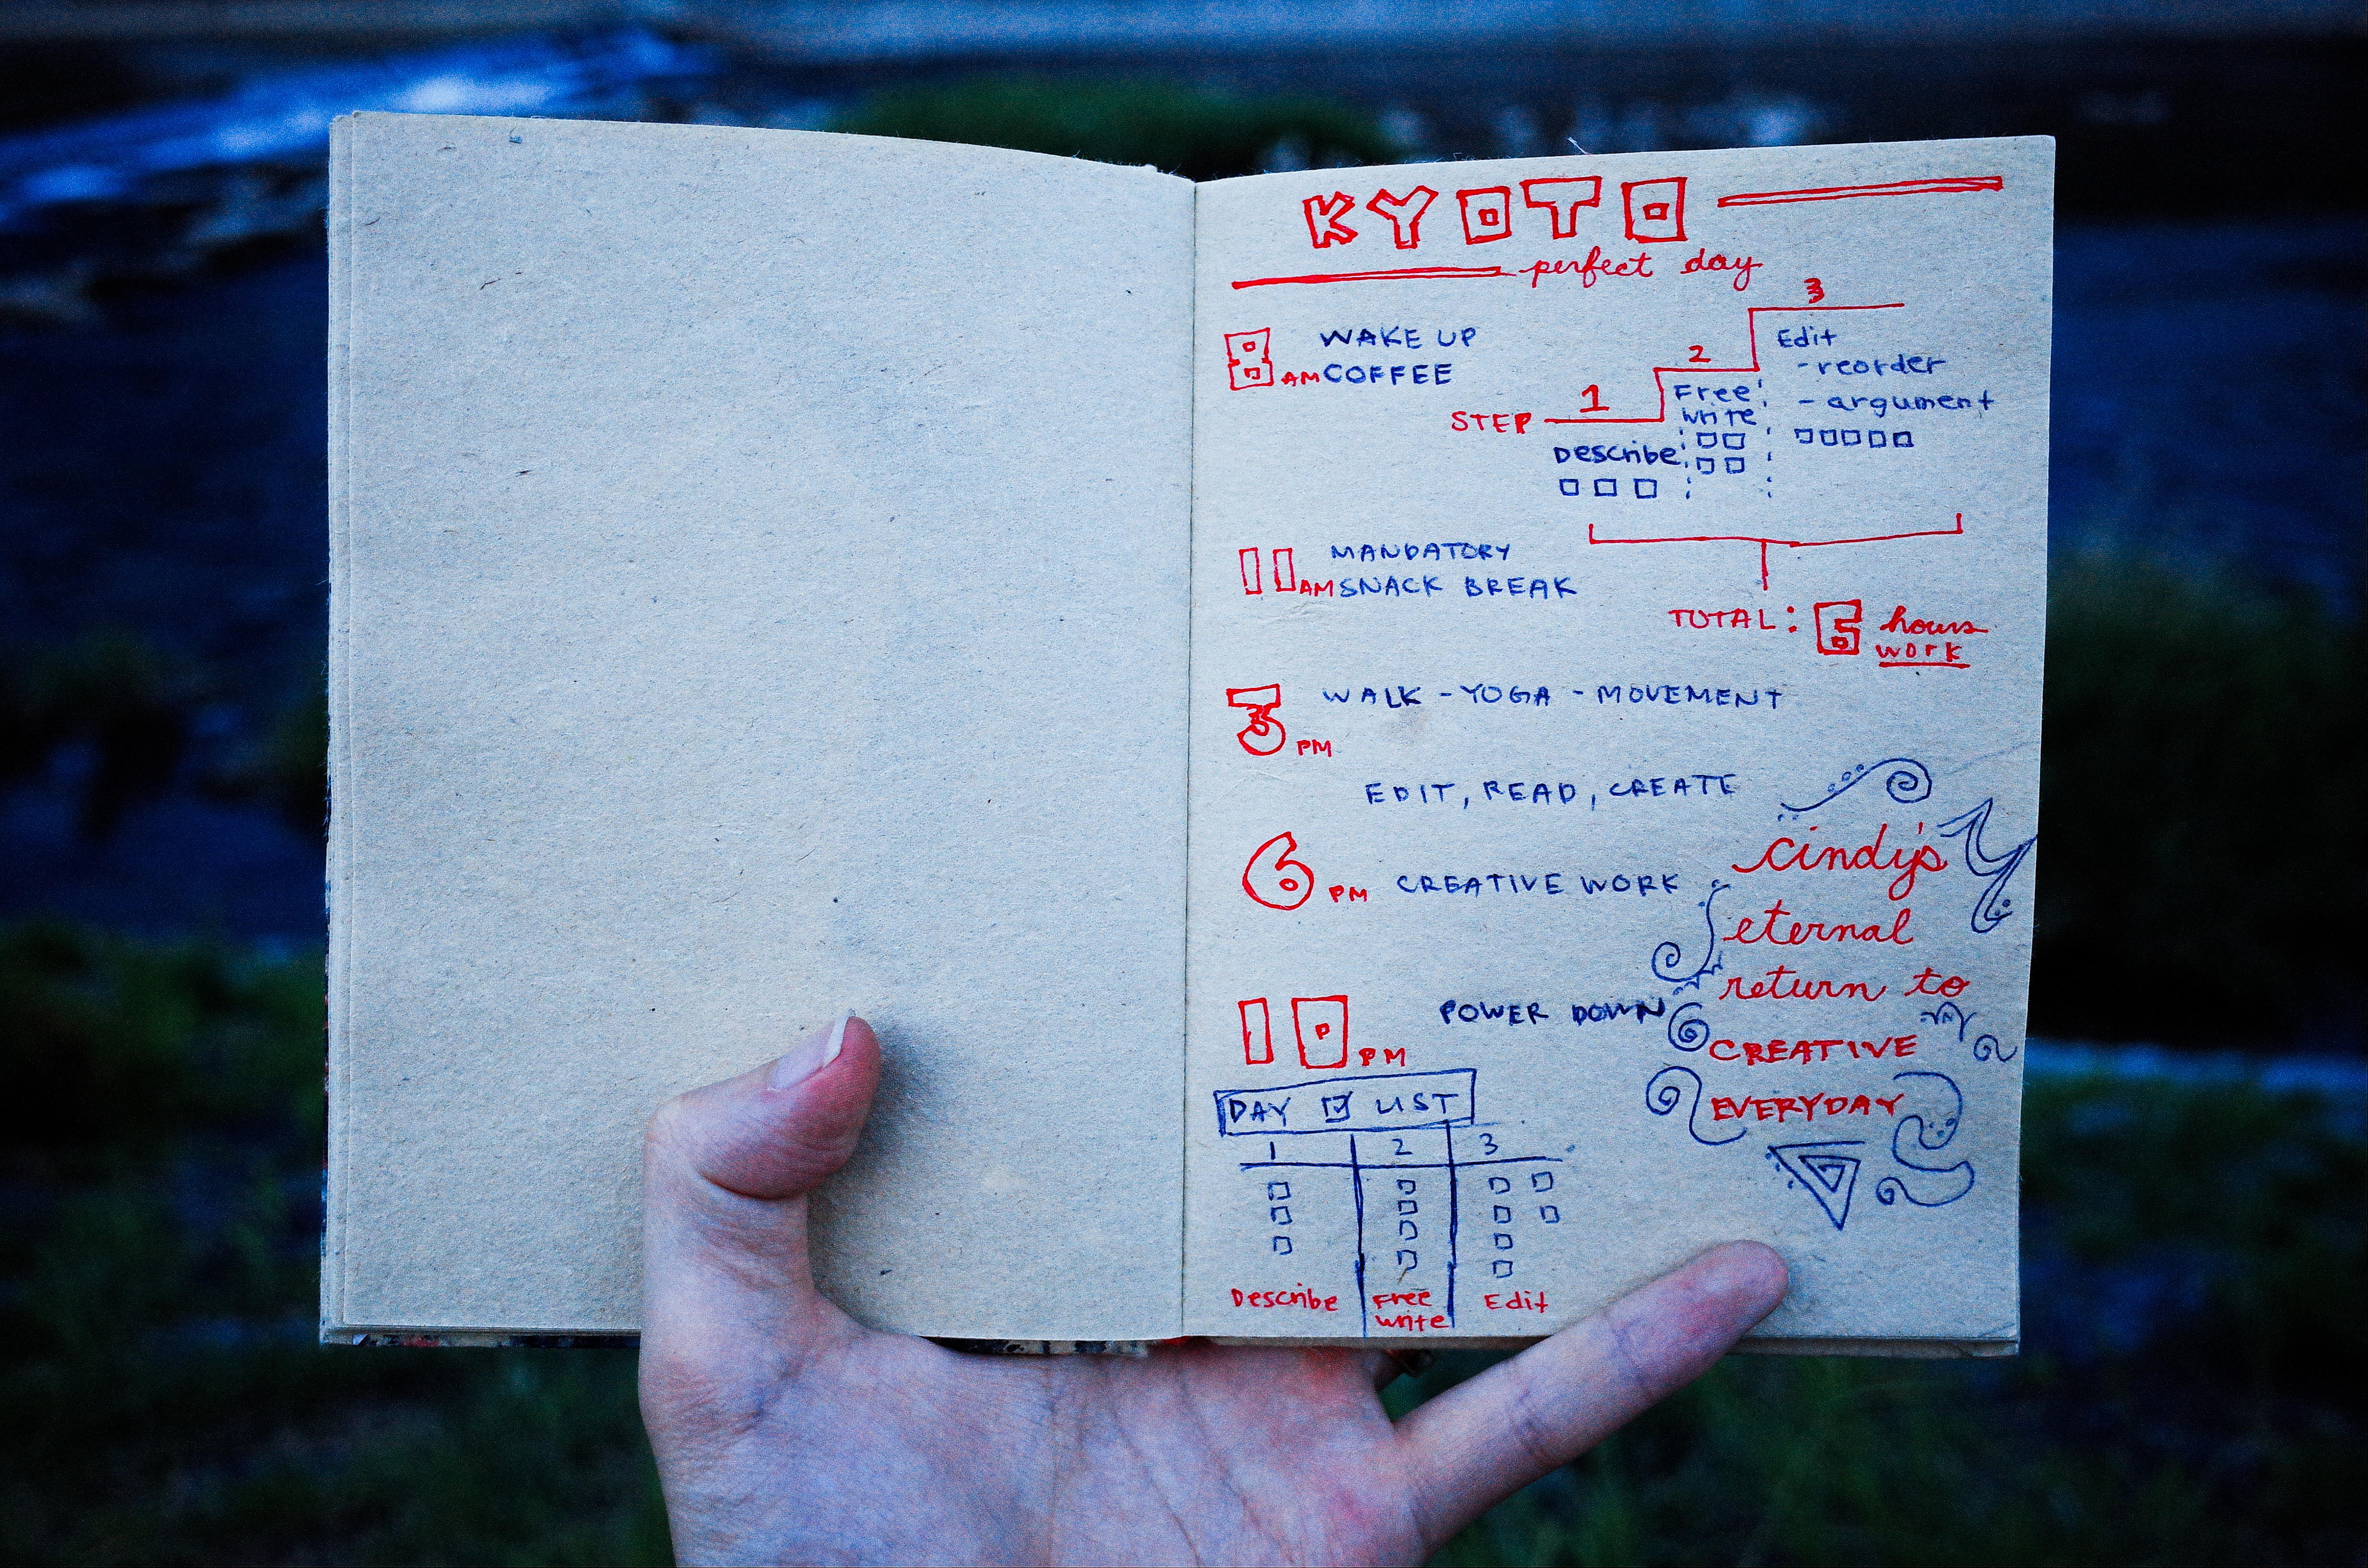 KYOTO
perfect day
8 AM WAKE UP
COFFEE
STEP 1 2 3
Describe
Free write
Edit
- reorder
- argument
11 AM MANDATORY
SNACK BREAK
TOTAL: 6 hours
work
3 PM WALK - YOGA - MOVEMENT
EDIT, READ, CREATE
6 PM CREATIVE WORK
10 PM POWER DOWN
cindy's
eternal
return to
CREATIVE
EVERYDAY
DAY LIST
1 2 3
Describe Free write Edit